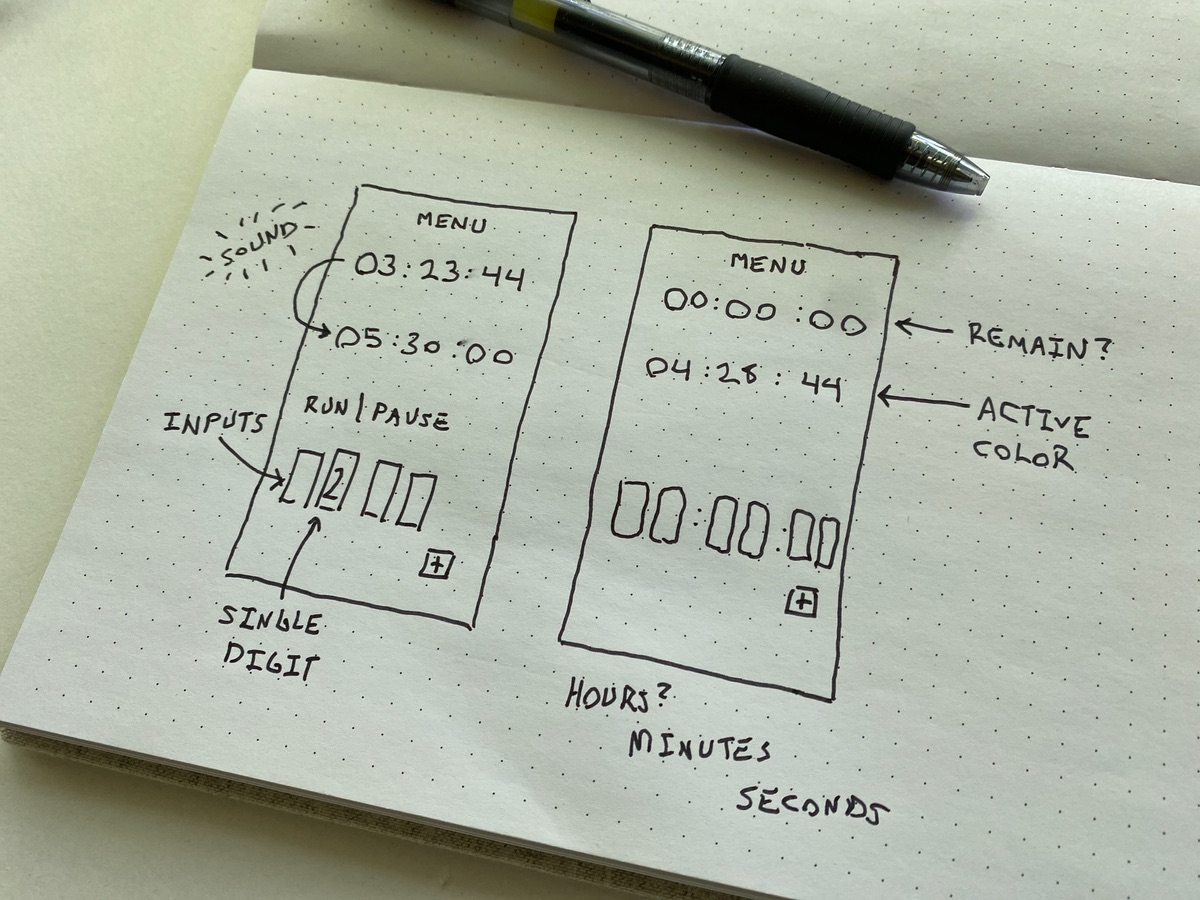 SOUND
MENU
03:23:44
05:30:00
RUN|PAUSE
INPUTS
2
+
SINGLE
DIGIT
MENU
00:00:00
REMAIN?
04:28:44
ACTIVE
COLOR
: :
+
HOURS?
MINUTES
SECONDS